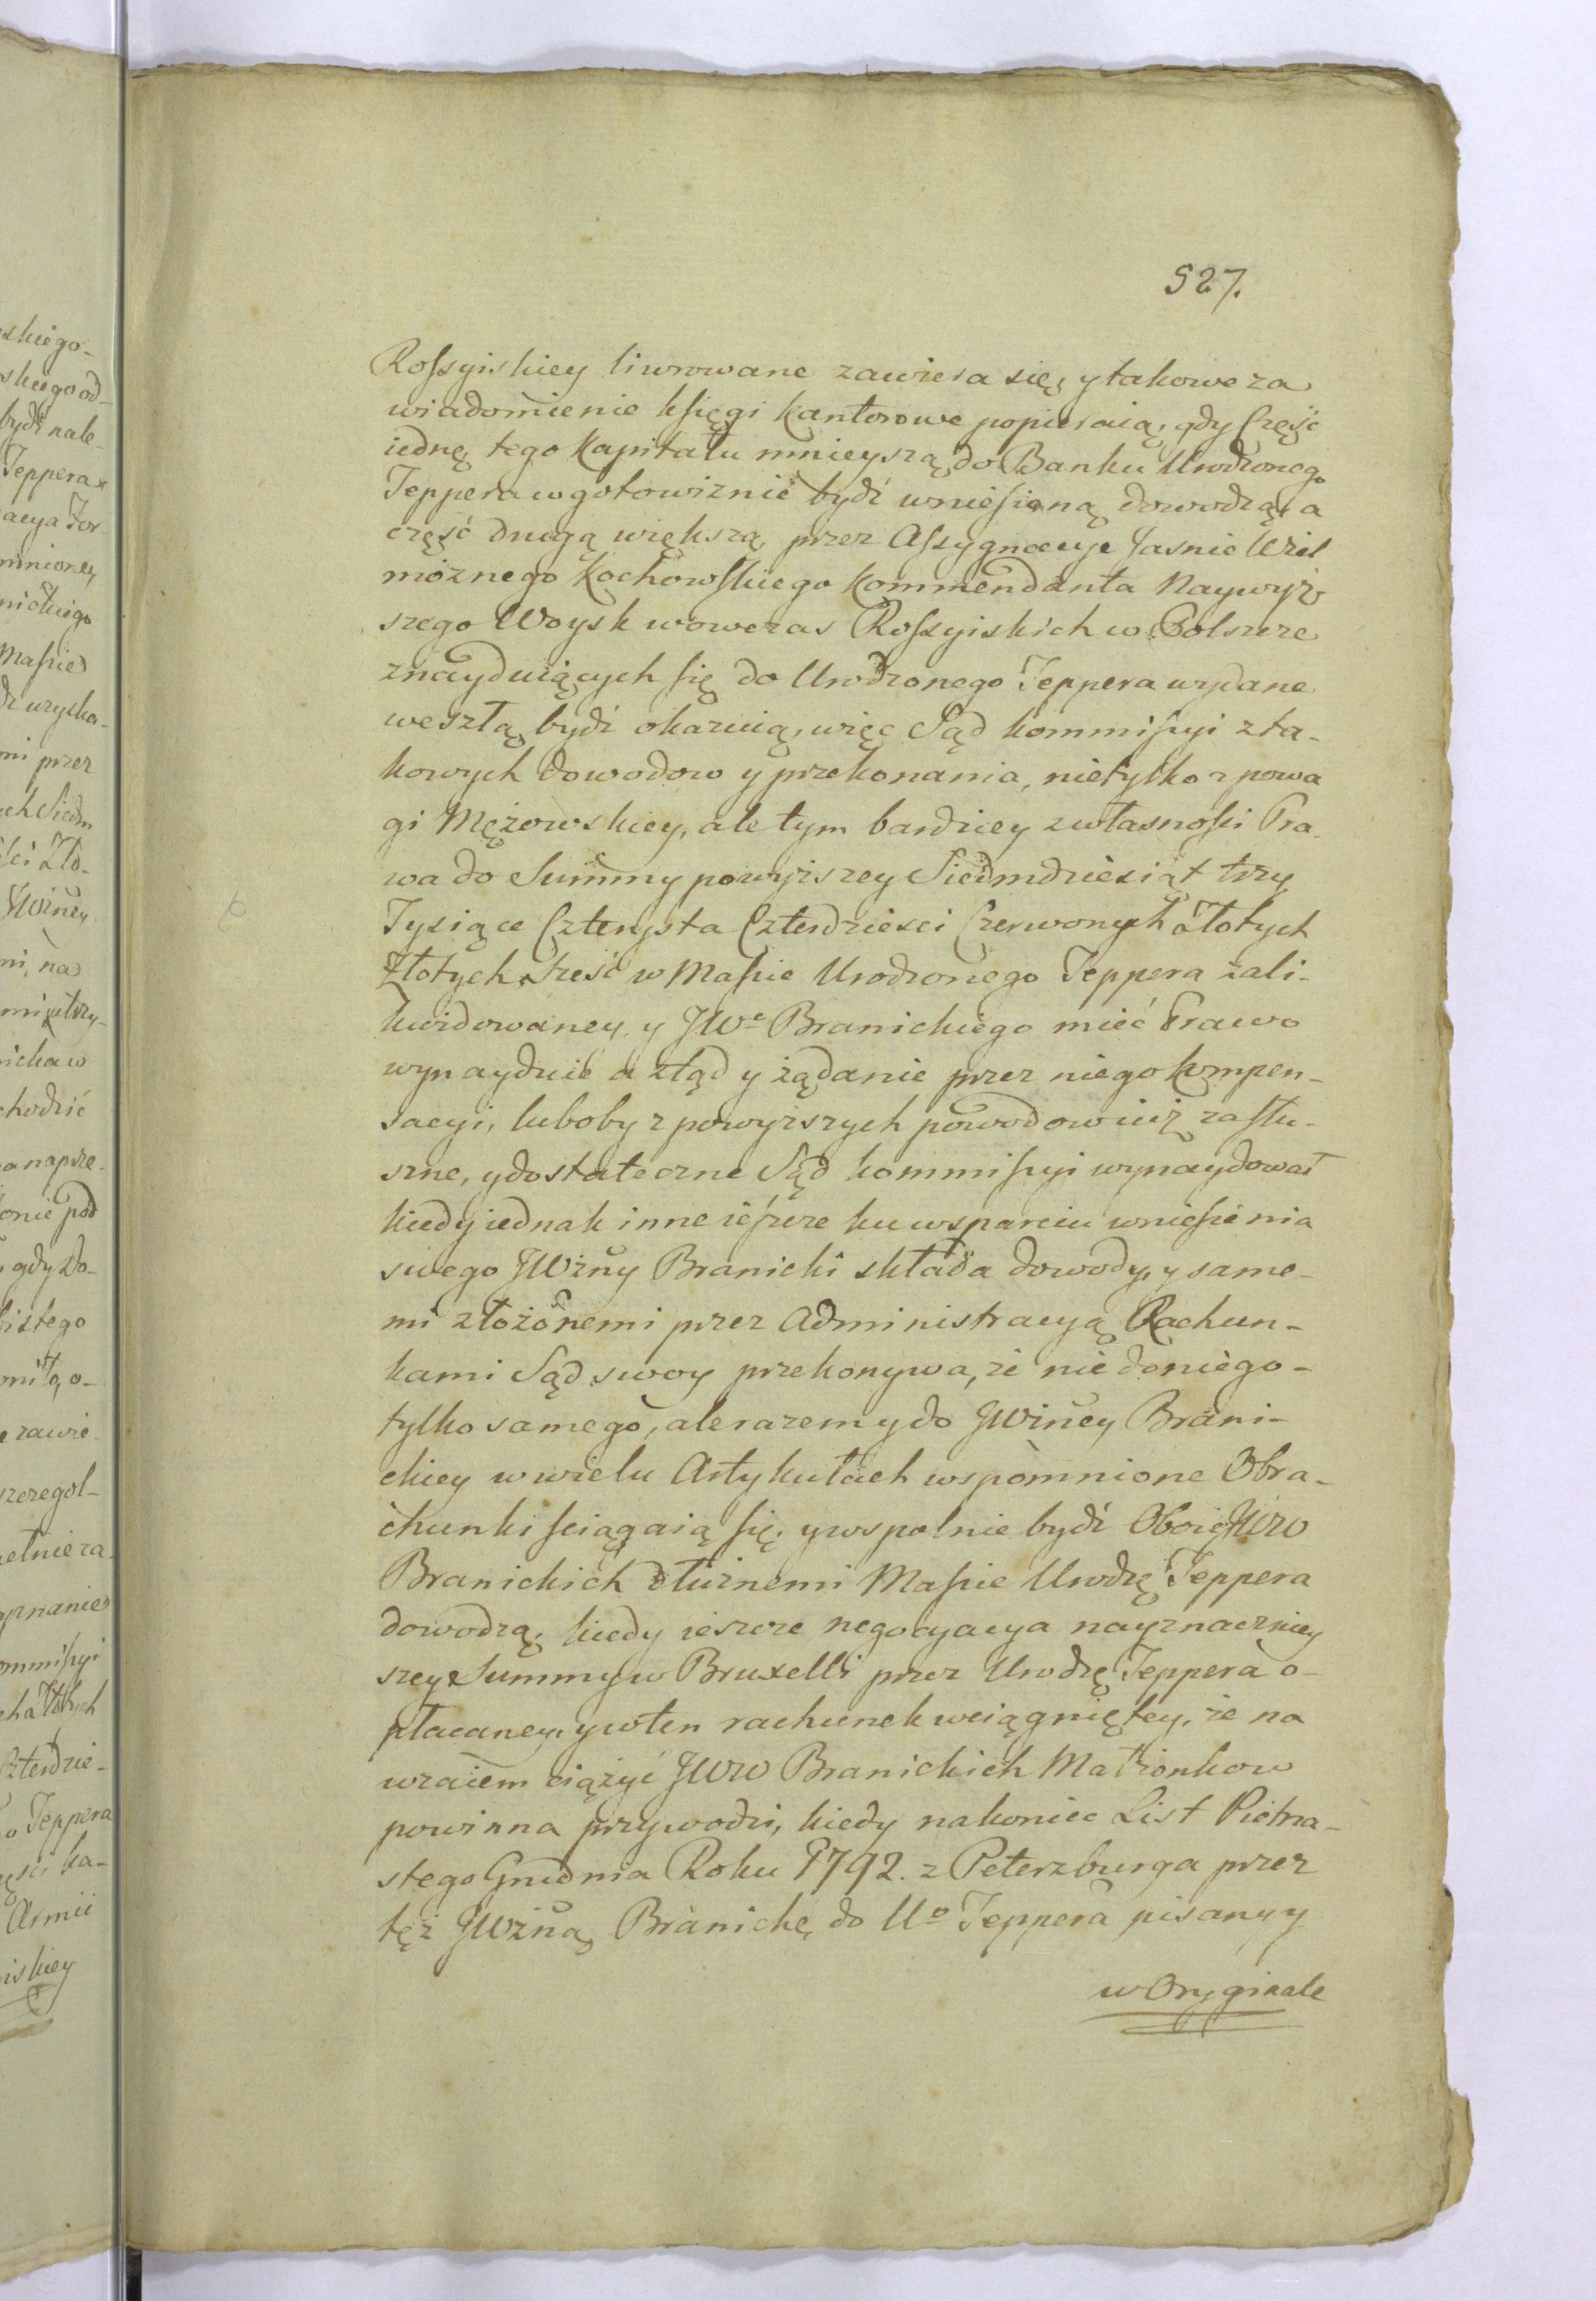 527.
Rossyiskiey liwrowane zawiera się, y takowe za
wiadomienie księgi kantorowe popieraią, gdy Część
iednę tego Kapitału mnieyszą do Banku Urodzonego
Teppera w gotowiznie bydź wniesioną dowodzą, a
część drugą większą, przez Assygnacye Jasnie Wiel
możnego Kochowskiego Kommendanta Naywyż
szego Woysk wowczas Rossyiskich w Polszcze
znayduiących się do Urodzonego Teppera wydane
weszłą bydź okazuią, więc Sąd kommissyi z ta-
kowych dowodow y przekonania, nietylko z powa
gi Mężowskiey, ale tym bardziey z własności Pra-
wa do Summy powyższey Siedmdziesiąt trzy
Tysiące Czterysta Czterdziesci Czerwonych Złotych
Złotych Sześć w Massie Urodzonego Teppera zali-
kwidowaney y JWo Branickiego mieć Prawo
wynayduie a ztąd y żądanie przez niego kompen-
sacyi, luboby z powyższych powodow iuż za słu-
szne, y dostateczne Sąd kommissyi wynaydował
kiedy iednak inne ieszcze ku wsparciu wniesienia
swego JWżny Branicki składa dowody, y same-
mi złożonemi przez Administracyą Rachun-
kami Sąd swoy przekonywa, że nie do niego-
tylko samego, ale razem y do JWżney Brani-
ckiey w wielu Artykułach wspomnione Obra-
chunki sciągaią się, y wspolnie bydź Oboie JWW
Branickich dłużnemi Massie Urodzę Teppera
dowodzą, kiedy ieszcze negocyacya nayznaczniey
szey Summy w Bruxelli przez Urodzę Teppera o-
płacaney, y w ten rachunek wciągniętey, że na
wzaiem ciążyć JWW Branickich Małżonkow
powinna przywodzi, kiedy nakoniec List Piętna-
stego Grudnia Roku 1792. z Peterzburga przez
też JWżną Branickę do Uo Teppera pisany y
w Oryginale